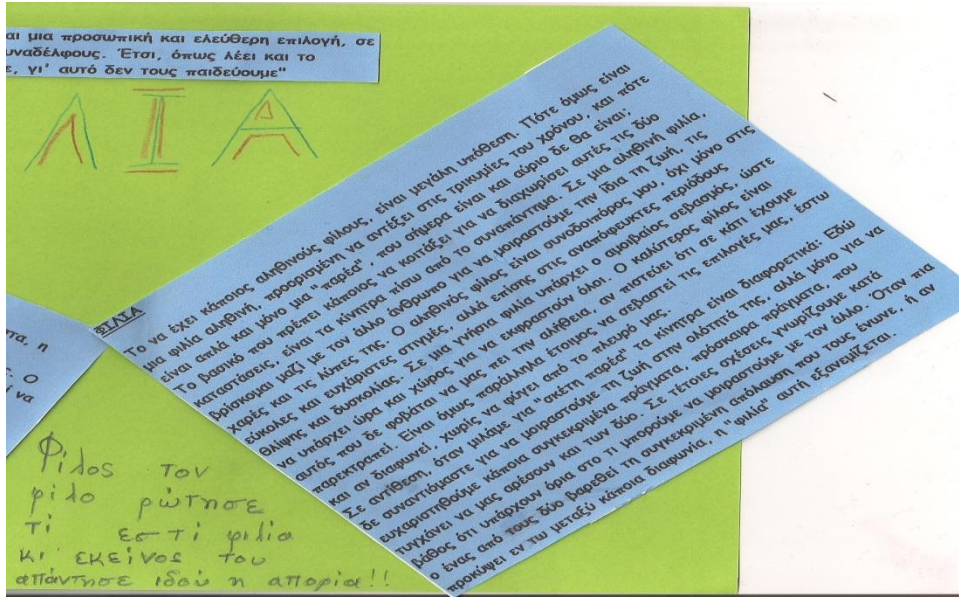 αι μια προσωπική και ελεύθερη επιλογή, σε
υναδέλφους. Έτσι, όπως λέει και το
ε, γι' αυτό δεν τους παιδεύουμε"
ΛΙΑ
ΦΙΛΙΑ
Το να έχει κάποιος αληθινούς φίλους, είναι μεγάλη υπόθεση. Πότε όμως είναι
μια φιλία αληθινή, προορισμένη να αντέξει στις τρικυμίες του χρόνου, και πότε
είναι απλά και μόνο μια "παρέα", που σήμερα είναι και αύριο δε θα είναι;
Το βασικό που πρέπει κάποιος να κοιτάξει για να διαχωρίσει αυτές τις δύο
καταστάσεις, είναι τα κίνητρα πίσω από το συναπάντημα. Σε μια αληθινή φιλία,
βρίσκομαι μαζί με τον άλλο άνθρωπο για να μοιραστούμε την ίδια τη ζωή, τις
χαρές και τις λύπες της. Ο αληθινός φίλος είναι συνοδοιπόρος μου, όχι μόνο στις
εύκολες και ευχάριστες στιγμές, αλλά επίσης στις αναπόφευκτες περιόδους
θλίψης και δυσκολίας. Σε μια γνήσια φιλία υπάρχει ο αμοιβαίος σεβασμός, ώστε
να υπάρχει ώρα και χώρος για να εκφραστούν όλοι. Ο καλύτερος φίλος είναι
αυτός που δε φοβάται να μας πει την αλήθεια, αν πιστεύει ότι σε κάτι έχουμε
παρεκτραπεί. Είναι όμως παράλληλα έτοιμος να σεβαστεί τις επιλογές μας, έστω
και αν διαφωνεί, χωρίς να φύγει από το πλευρό μας.
Σε αντίθεση, όταν μιλάμε για "σκέτη παρέα" τα κίνητρα είναι διαφορετικά: Εδώ
δε συναντιόμαστε για να μοιραστούμε τη ζωή στην ολότητά της, αλλά μόνο για να
ευχαριστηθούμε κάποια συγκεκριμένα πράγματα, πρόσκαιρα πράγματα, που
τυγχάνει να μας αρέσουν και των δύο. Σε τέτοιες σχέσεις γνωρίζουμε κατά
βάθος ότι υπάρχουν όρια στο τι μπορούμε να μοιραστούμε με τον άλλο. Όταν πια
ο ένας από τους δύο βαρεθεί τη συγκεκριμένη απόλαυση που τους ένωνε, ή αν
προκύψει εν τω μεταξύ κάποια διαφωνία, η "φιλία" αυτή εξανεμίζεται.
τα, η
Ο
να
Φίλος τον
φίλο ρώτησε
τί εστί φιλία
κι' εκείνος του
απάντησε ιδού η απορία!!